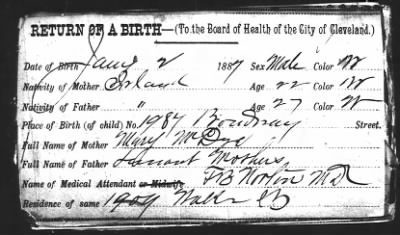 RETURN OF A BIRTH—(To the Board of Health of the City of Cleveland.)
Date of Birth Jany 2 1887 Sex Male Color W
Nativity of Mother Ireland Age 22 Color W
Nativity of Father " Age 27 Color W
Place of Birth (of child) No. 1984 Broadway Street.
Full Name of Mother Mary
Full Name of Father
Name of Medical Attendant or Midwife FB Norton Md
Residence of same 1909